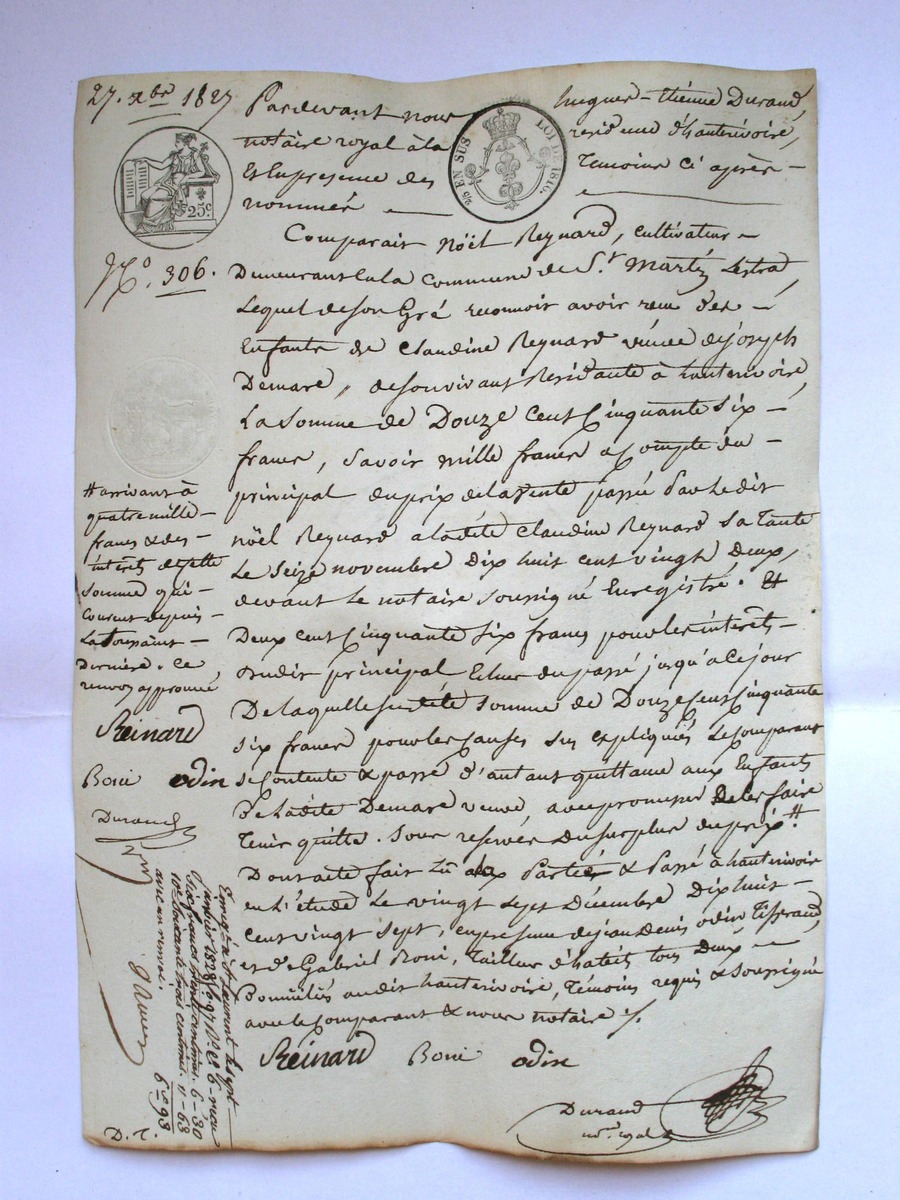 27. Xbre 1827
25c
25 EN SUS LOI DE 1816.
N.o 306.
Pardevant nous hugues-étienne Durand
notaire royal à la résidence d'hauterivoire,
Et En presence des Témoins Ci après
nommés
Comparait Nöël Reynard, cultivateur
Demeurant En la Commune de St. Martin Lestra
Lequel de son Gré reconnoit avoir recu des
Enfants de Claudine Reynard veuve de joseph
Demare, de son vivant Residante à hauterivoire
La somme de Douze Cent Cinquante Six
francs, Savoir mille francs à Compte du
principal du prix de la Vente passé par Le dit
nöël Reynard a la dite Claudine Reynard Sa Tante
Le Seize novembre Dix huit cent vingt Deux,
devant Le notaire soussigné Enregistré. Et
Deux Cent Cinquante Six francs pour les intérêts
dudit principal Echus du passé jusqu'a Ce jour
De laquelle susdite somme de Douze Cent Cinquante
six francs pour les Causes sus expliqués Le Comparant
se Contente & passé d'autant quittance aux Enfants
de la dite Demare veuve, avec promesse De les faire
Tenir quitte. Sous reserves du surplus du prix #
Dont acte fait Lu aux Parties & Passé à hauterivoire
en L'étude Le vingt Sept Décembre Dix huit
Cent vingt Sept, en presence de jean Denis odin Tisserand
et de Gabriel Boni, Tailleur d'habits tous Deux
Domiciliés audit hauterivoire, Témoins requis & Soussignés
avec Le Comparant & nous notaire ./.
Reinard Boni odin
Durand
not. royal
# arrivant à
quatre mille
francs & des
intérêts de cette
Somme qui
Courent depuis
La Toussaint
Dernière. Ce
renvoi approuvé
Reinard
Boni odin
Durand
Enregé à St Laurent le sept
janvier 1828
six francs trente centimes. 6-30
10e Soixante trois centimes. "-63
avec un renvoi. 6-93
D. T.